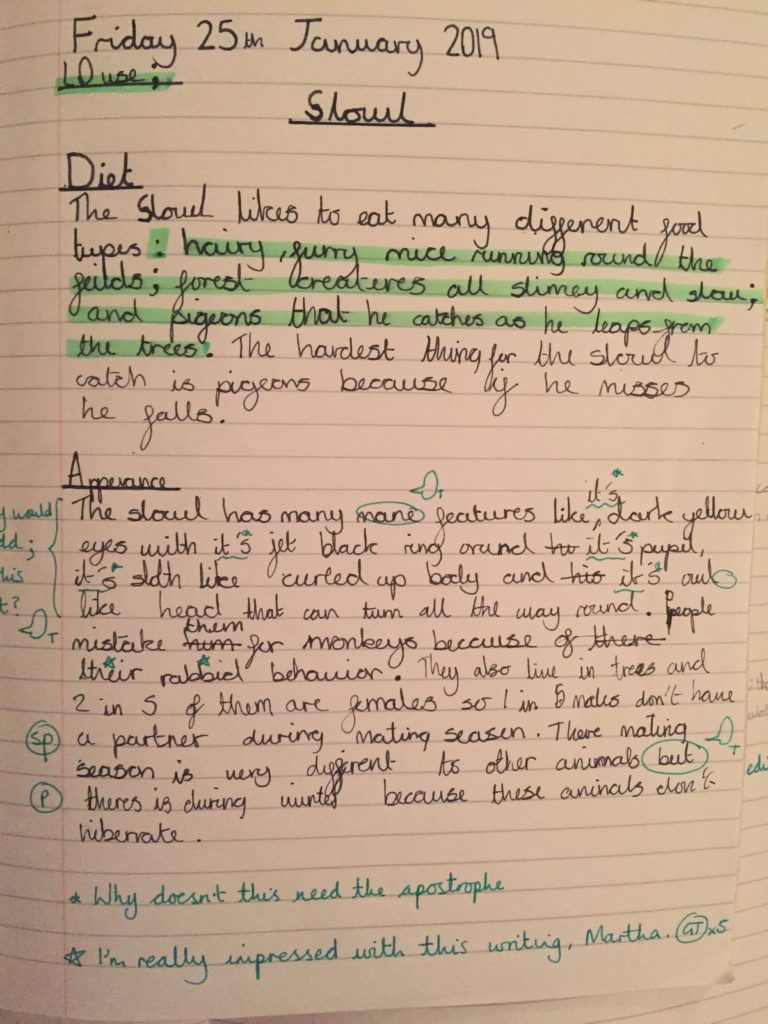 Friday 25th January 2019
LO use ;
Slowl
Diet
The Slowl likes to eat many different food
types : hairy , furry mice running round the
feilds ; forest createres all slimey and slow ;
and pigeons that he catches as he leaps from
the trees . The hardest thing for the slowl to
catch is pigeons because if he misses
he falls .
Apperance
it's
The slowl has many mane features like , dark yellow
eyes with it's jet black ring orund it's pupil ,
it's sloth like curled up body and his it's owl
like head that can turn all the way round . People
them
mistake him for monkeys because of there
their rabbid behavior . They also live in trees and
2 in 5 of them are females so 1 in 5 males don't have
a partner during mating season . There mating
season is very different to other animals but
theres is during winter because these animals don't
hibernate .
y would
dd ;
this
t ?
T
T
T
sp
P
edi
* Why doesn't this need the apostrophe
* I'm really impressed with this writing, Martha. GT x5